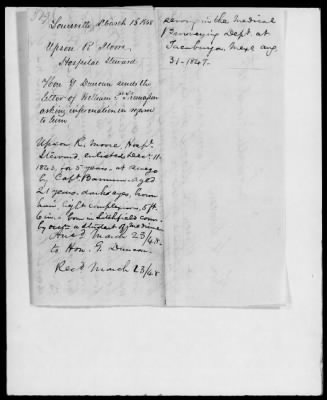 Somerville, March 15 1848
Upson R. Moore,
Hospital Steward
Hon. G. Duncan sends the
letter of William
asking information in regard
to him
Upson R. Moore, Hosp.
Steward, enlisted Dec. 11.
1843, for 5 years, at
by Capt. Barnum, aged
21 years, dark eyes, brown
hair, light complexion, 5 ft.
6 in. born in Litchfield Conn.
by occ. a student of medicine
Ans. March 23/48
to Hon. G. Duncan.
Rec'd March 23/48
serving in the Medical
Purveying Dept. at
Tacubaya, Mexo. Aug
31. 1847.